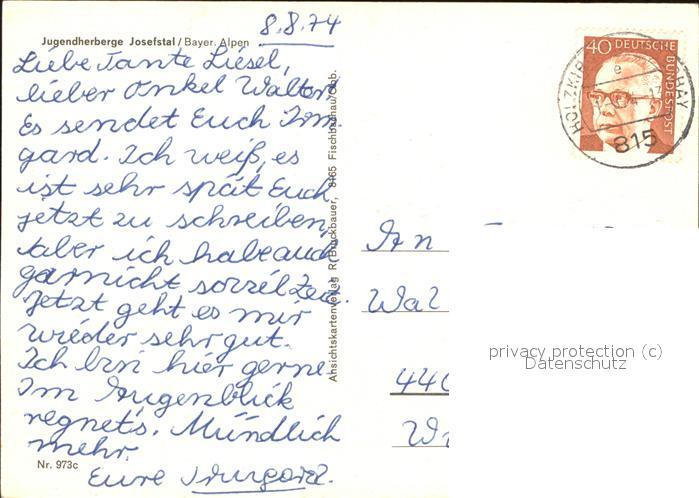 8.8.74
Jugendherberge Josefstal / Bayer. Alpen
Liebe Tante Liesel,
lieber Onkel Walter!
Es sendet Euch Irm-
gard. Ich weiß, es
ist sehr spät Euch
jetzt zu schreiben,
aber ich habe auch
garnicht soviel Zeit.
Jetzt geht es mir
wieder sehr gut.
Ich bin hier gerne.
Im Augenblick
regnets. Mündlich
mehr.
Eure Irmgard.
Nr. 973c
Ansichtskartenverlag R. Bruckbauer, 8165 Fischbachau/Obb.
40 DEUTSCHE
BUNDESPOST
815
An
Wal
440
privacy protection (c)
Datenschutz